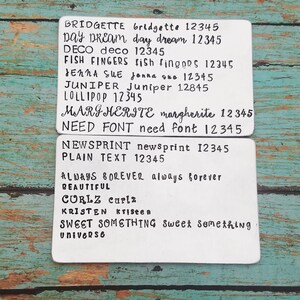 BRIDGETTE bridgette 12345
DAY DREAM day dream 12345
DECO deco 12345
FISH FINGERS fish fingers 12345
JENNA SUE jenna sue 12345
JUNIPER Juniper 12845
LOLLIPOP 12345
MARGHERITE margherite 12345
NEED FONT need font 12345
NEWSPRINT newsprint 12345
PLAIN TEXT 12345
ALWAYS FOREVER always forever
BEAUTIFUL
CURLZ curlz
KRISTEN kristen
SWEET SOMETHING sweet something
UNIVERSE